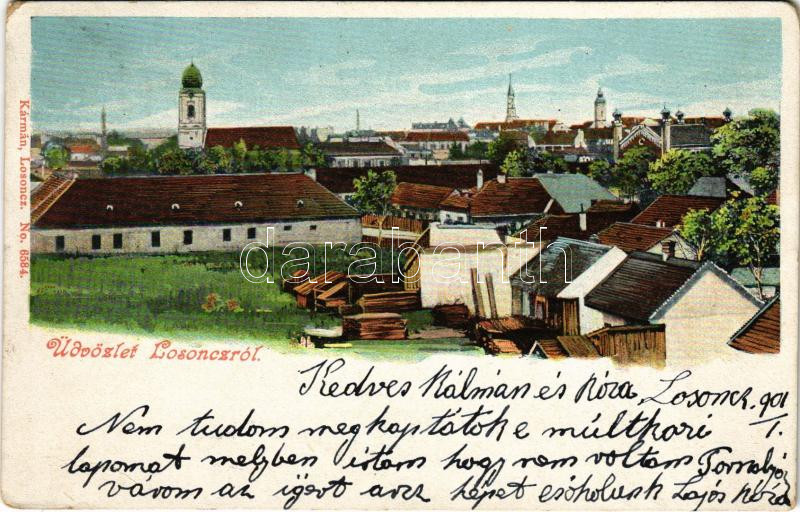 Kármán, Losoncz. No. 6584.
darabanth
Üdvözlet Losonczról.
Kedves Kálmán és Róza, Losoncz. 901
Nem tudom megkaptátok e múltkori I.
lapomat melyben irtam hogy nem voltam Tornalján
várom az igért arcz képet csóholunk Lajos Róza